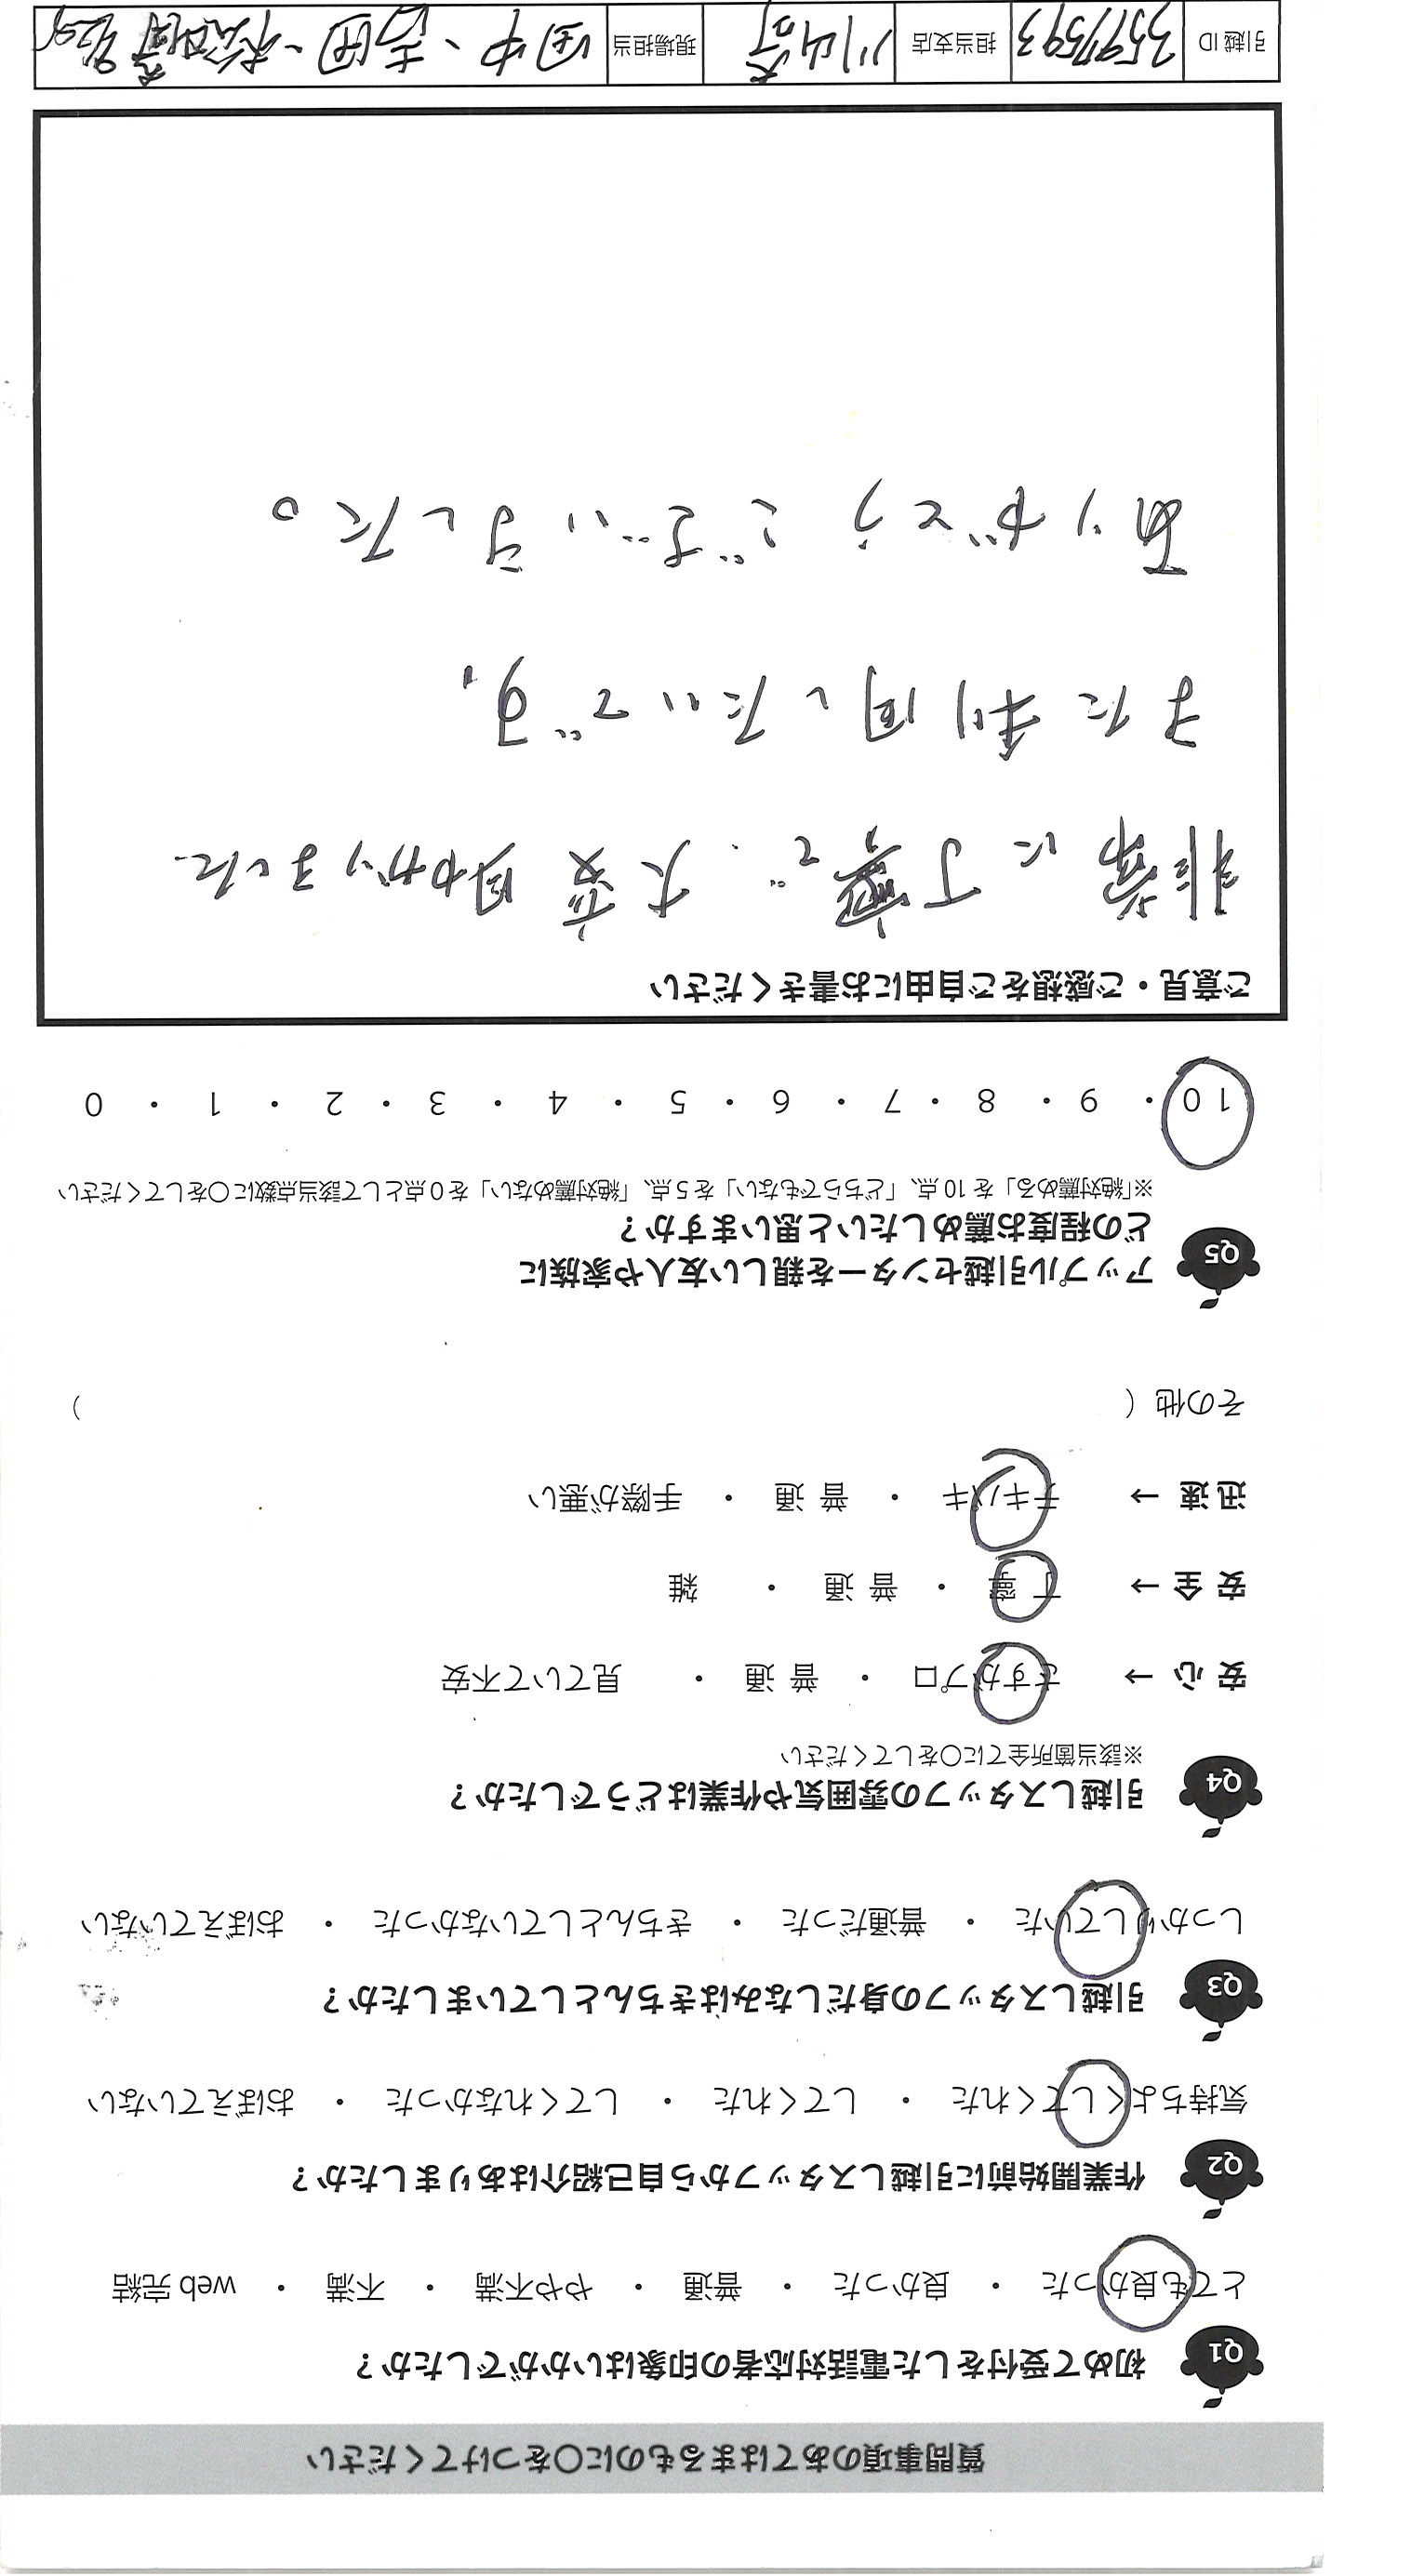 質問事項のあてはまるものに〇をつけてください
Q1 初めて受付をした電話対応者の印象はいかがでしたか?
とても良かった ・ 良かった ・ 普通 ・ やや不満 ・ 不満 ・ web 完結
Q2 作業開始前に引越しスタッフから自己紹介はありましたか?
気持ちよくしてくれた ・ してくれた ・ してくれなかった ・ おぼえていない
Q3 引越しスタッフの身だしなみはきちんとしていましたか?
しっかりしていた ・ 普通だった ・ きちんとしていなかった ・ おぼえていない
Q4 引越しスタッフの雰囲気や作業はどうでしたか?
※該当箇所全てに〇をしてください
安 心 → さすがプロ ・ 普 通 ・ 見ていて不安
安 全 → 丁 寧 ・ 普 通 ・ 雑
迅 速 → テキパキ ・ 普 通 ・ 手際が悪い
その他 ( )
Q5 アップル引越センターを親しい友人や家族に
どの程度お薦めしたいと思いますか?
※「絶対薦める」を 10 点、「どちらでもない」を 5 点、「絶対薦めない」を 0 点として該当点数に〇をしてください
10 ・ 9 ・ 8 ・ 7 ・ 6 ・ 5 ・ 4 ・ 3 ・ 2 ・ 1 ・ 0
ご意見・ご感想をご自由にお書きください
非常に丁寧で、大変助かりました。
また利用したいです。
ありがとうございました。
引越 ID 3597593 担当支店 川崎 現場担当 田中、吉田、